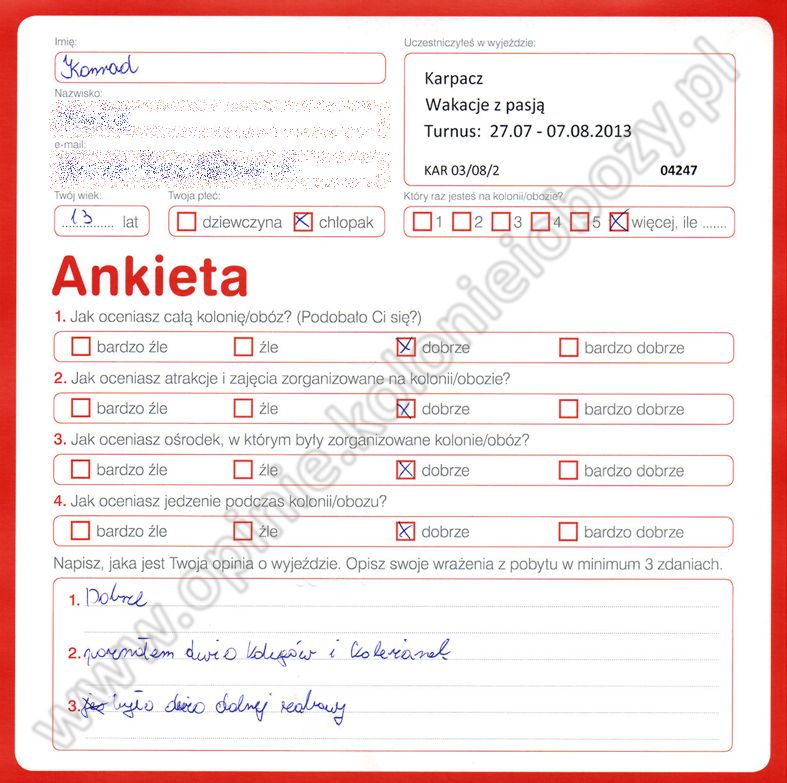 Imię:
Uczestniczyłeś w wyjeździe:
Konrad
Karpacz
Wakacje z pasją
Turnus: 27.07 - 07.08.2013
KAR 03/08/2 04247
Nazwisko:
e-mail:
Twój wiek: Twoja płeć: Który raz jesteś na kolonii/obozie?
13 lat dziewczyna chłopak 1 2 3 4 5 więcej, ile .......
Ankieta
1. Jak oceniasz całą kolonię/obóz? (Podobało Ci się?)
bardzo źle źle dobrze bardzo dobrze
2. Jak oceniasz atrakcje i zajęcia zorganizowane na kolonii/obozie?
bardzo źle źle dobrze bardzo dobrze
3. Jak oceniasz ośrodek, w którym były zorganizowane kolonie/obóz?
bardzo źle źle dobrze bardzo dobrze
4. Jak oceniasz jedzenie podczas kolonii/obozu?
bardzo źle źle dobrze bardzo dobrze
Napisz, jaka jest Twoja opinia o wyjeździe. Opisz swoje wrażenia z pobytu w minimum 3 zdaniach.
1. Dobrze
2. poznałem i
3. było
www.opinie.kolonieiobozy.pl